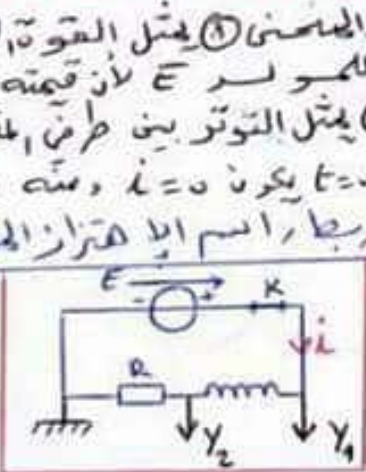 المنحنى ① يمثل القوة ا
للمولد E لأن قيمته
يمثل التوتر بين طرفي الم
t=0 يكون i=0 ومنه
ربط راسم الاهتزاز الم
E
- + K
i
R
Y₂ Y₁